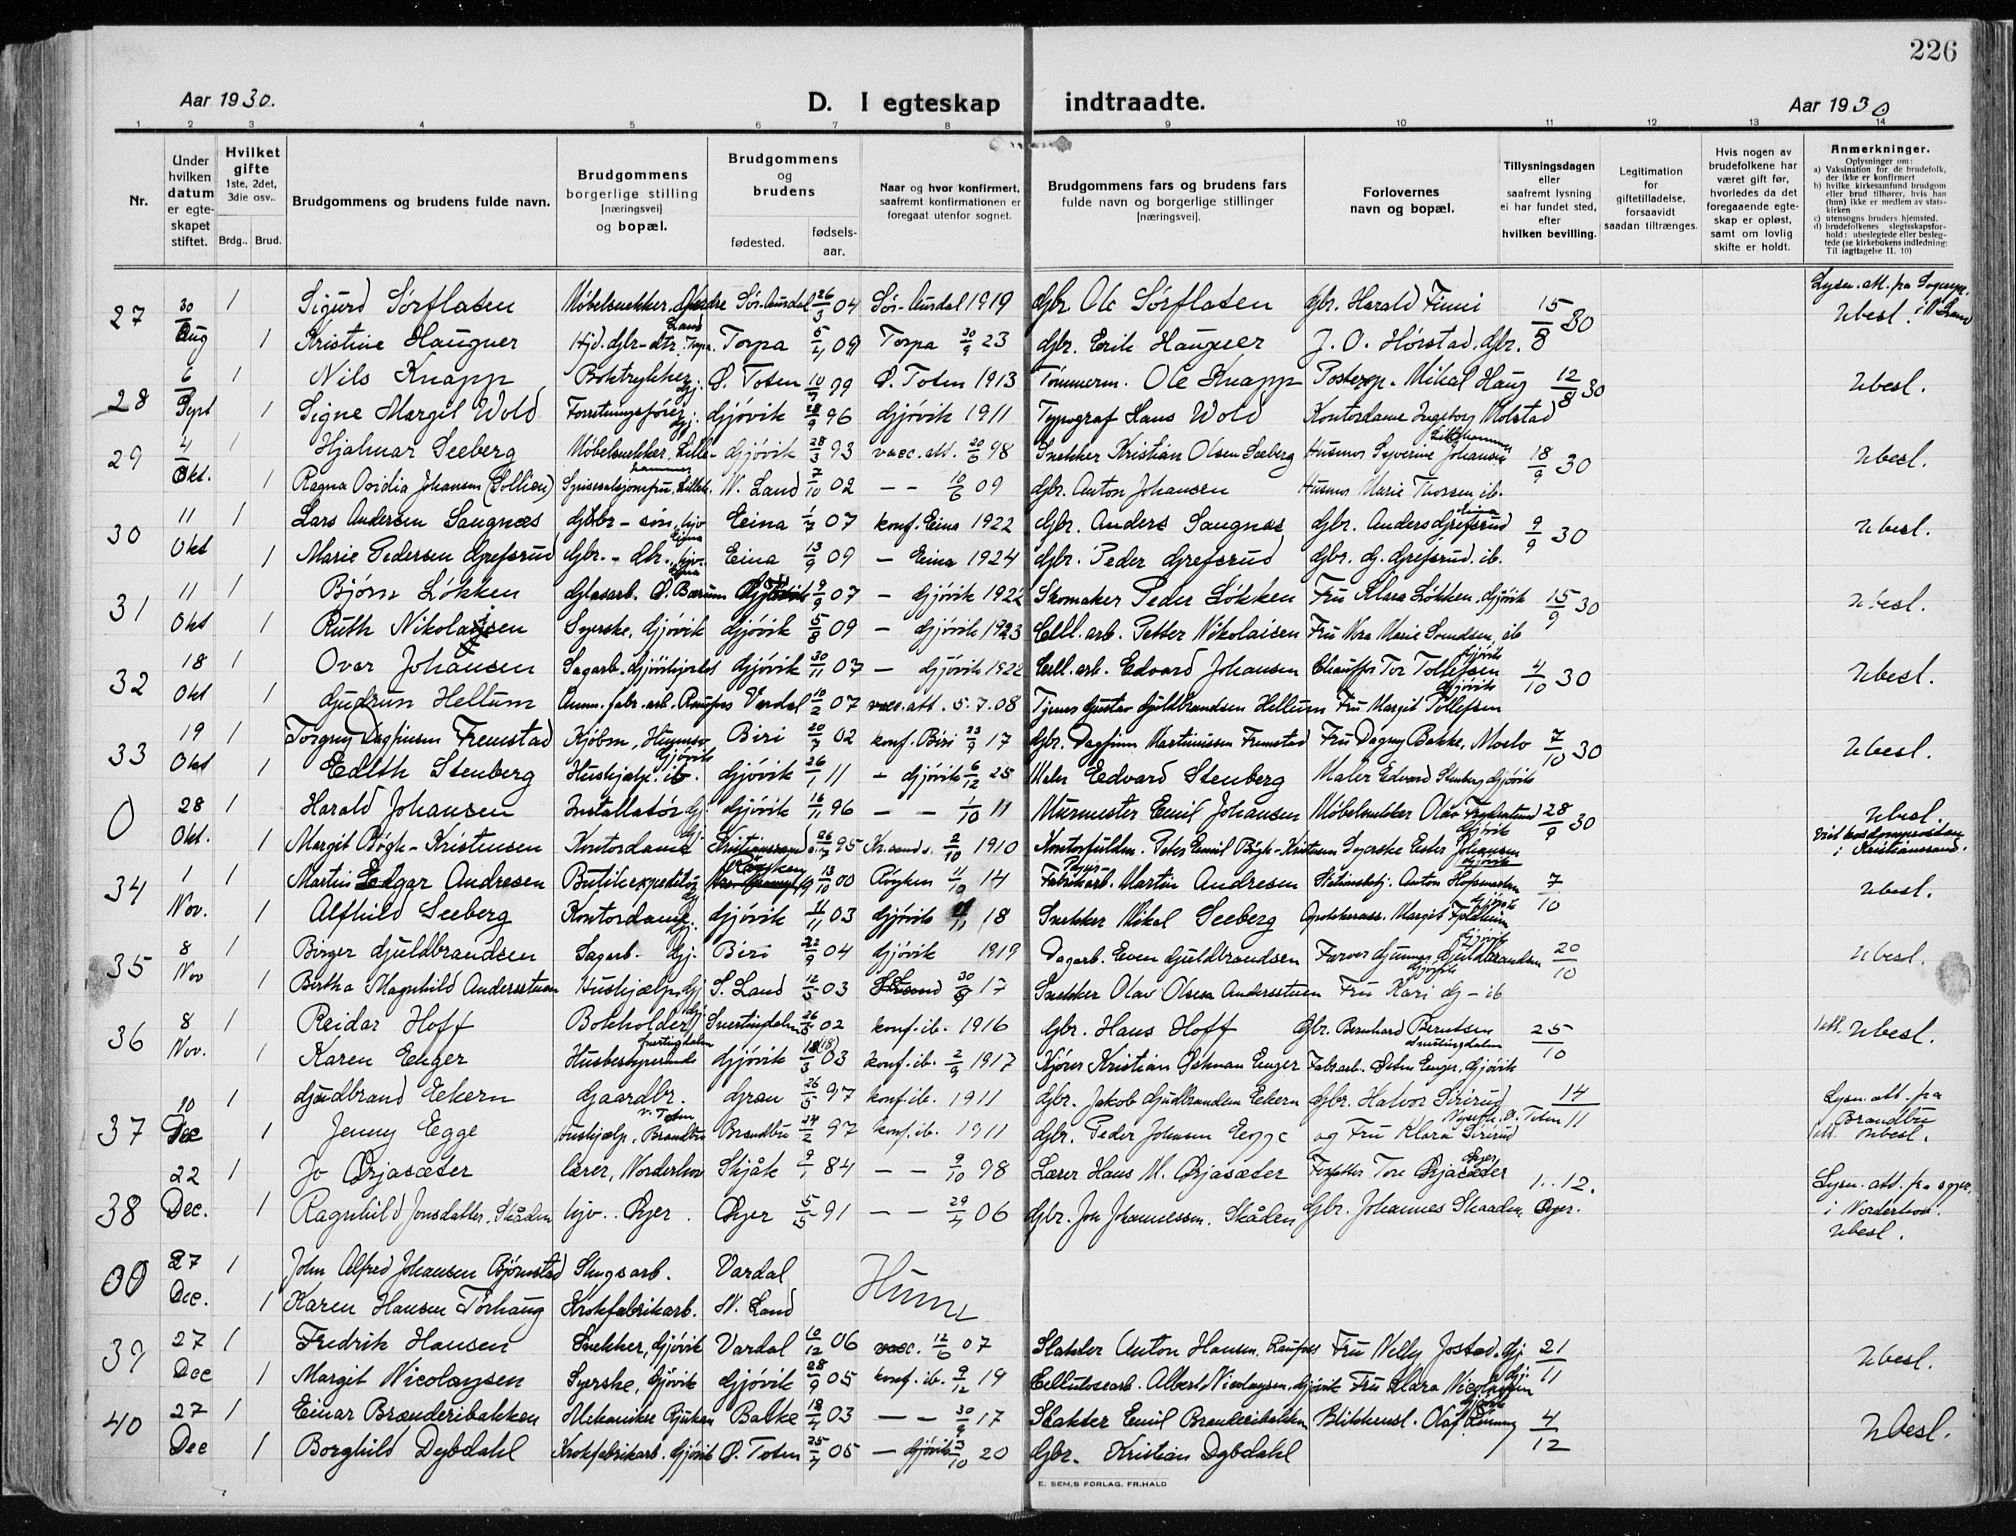 226
Aar 1930.
D. I egteskap indtraadte.
Aar 1930
1 2 3 4 5 6 7 8 9 10 11 12 13 14
Nr.
Under hvilken datum er egteskapet stiftet.
Hvilket gifte 1ste, 2det, 3die osv..
Brdg.. Brud.
Brudgommens og brudens fulde navn.
Brudgommens borgerlige stilling [næringsvei] og bopæl.
Brudgommens og brudens
fødested. fødsels-aar.
Naar og hvor konfirmert, saafremt konfirmationen er foregaat utenfor sognet.
Brudgommens fars og brudens fars fulde navn og borgerlige stillinger [næringsvei].
Forlovernes navn og bopæl.
Tillysningsdagen eller saafremt lysning ei har fundet sted, efter hvilken bevilling.
Legitimation for giftetilladelse, forsaavidt saadan tiltrænges.
Hvis nogen av brudefolkene har været gift før, hvorledes da det foregaaende egteskap er opløst, samt om lovlig skifte er holdt.
Anmerkninger.
Oplysninger om:
a) Vaksination for de brudefolk, der ikke er konfirmert
b) hvilke kirkesamfund brudgom eller brud tilhører, hvis han (hun) ikke er medlem av statskirken
c) utensogns bruders hjemsted.
d) brudefolkenes slegtsskapsforhold: ubeslegtede eller beslegtede (se kirkebokens indledning: Til iagttagelse II. 10)
27 30/8 Aug 1 Sigurd Sørflaten Møbelsnekker, Søndre Land Sør-Aurdal 26/3 04 Sør-Aurdal 1919 Gbr Ole Sørflaten Gbr. Harald Finni 15/8 30 Lysn. att. fra Sognepr. i N. Land Ubesl.
1 Kristine Haugner Hjd. Gbr-dtr. Torpa. Torpa 5/4 09 Torpa 30/9 23 Gbr. Erik Haugner J. O. Hørstad, Gbr.
28 6 Sept 1 Nils Knapp Boktrykker Gj. Ø. Toten 10/7 99 Ø. Toten 1913 Tømmerm. Ole Knapp Postexp. Mikal Haug 12/8 30 Ubesl.
1 Signe Margit Wold Forretningsfører Gj. Gjøvik 28/9 96 Gjøvik 1911 Typograf Hans Wold Kontordame Ingeborg Molstad
29 4 Okt. 1 Hjalmar Seeberg Møbelsnekker, Lillehammer Gjøvik 28/3 93 vacc. att. 20/6 98 Snekker Kristian Olsen Seeberg Husmor Syverine Johansen Lillehammer 18/9 30 Ubesl.
1 Ragna Ovidia Johansen (Sollien) N. Land 7/10 02 - - 10/6 09 Gbr. Anton Johansen Husmor Marie Thossen, ib.
30 11 Okt 1 Lars Andersen Saugnæs Gbr-søn, hjv Eina Eina 1/7 07 konf. Eina 1922 Gbr. Anders Saugnæs Gbr. Anders Grefsrud Eina 9/9 30 Ubesl.
1 Marie Pedersen Grefsrud Gbr.-dtr., hjv. Eina Eina 13/9 09 - Eina 1924 Gbr. Peder Grefsrud Gbr. G. Grefsrud ib.
31 11 Okt 1 Bjørn Løkken Glasarb. Ø. Bærum 9/9 07 - Gjøvik 1922 Skomaker Peder Løkken Fru Klara Løkken, Gjøvik 15/9 30 Ubesl.
1 Ruth Nikolaisen Syerske, Gjøvik Gjøvik 5/8 09 - Gjøvik 1923 Cell. arb. Petter Nikolaisen Fru Nora Marie Svendsen, ib
32 18 Okt 1 Ovar Johansen Sagarb. Gjøvik 30/11 07 - Gjøvik 1922 Cell. arb. Edvard Johansen Chauffør Tor Tollefsen Gjøvik 4/10 30 Ubesl.
1 Gudrun Hellum Amm. fabr. arb. Raufoss Vardal 10/2 07 vacc. att. 5.7.08 Gustav Guldbrandsen Hellum Fru Margit Tollefsen Gjøvik
33 19 Okt 1 Torgny Dagfinsen Fremstad Kjøbm, Gjøvik Biri 20/7 02 konf. Biri 23/9 17 Gbr. Dagfinn Martinussen Fremstad Fru Dagny Bakke, Moelv 7/10 30 Ubesl.
1 Edith Stenberg Hushjælp. ib. Gjøvik 26/1 11 - Gjøvik 6/12 25 Maler Edvard Stenberg Maler Edvard Stenberg Gjøvik
0 28 Okt. 1 Harald Johansen Installatør Gj. Gjøvik 16/11 96 - - 1/10 11 Murmester Emil Johansen Møbelsnekker Olav Gjøvik 28/9 30 Ubesl.
1 Margit Bøgh-Kristensen Kontordame Gj. Kristianssand 26/7 95 Kr.sand s. 2/10 1910 Kontorfuldm. Peter Emil Bøgh-Kristensen Syerske Ester Johansen Gjøvik i Kristianssand.
34 1 Nov. 1 Martin Edgar Andresen Butikexpeditør Gj. Røyken 13/10 00 Røyken 11/10 14 Papirfabrikarb. Martin Andresen Anton Hofsmarken 7/10 Ubesl.
1 Alfhild Seeberg Kontordame Gj. Gjøvik 11/11 03 Gjøvik 18 Snekker Mikal Seeberg Margit
35 8 Nov 1 Birger Guldbrandsen Sagarb. Gj. Biri 22/9 04 Gjøvik 1919 Dagarb. Even Guldbrandsen Farver Gunnar Guldbrandsen Gjøvik 20/10 Ubesl.
1 Bertha Magnhild Andersstuen Hushjælp Gj S. Land 12/5 03 30/9 17 Snekker Olav Olsen Andersstuen Fru Kari G - ib
36 8 Nov. 1 Reidar Hoff Bokholder Gj. Snertingdalen 26/5 02 konf. ib. 1916 Gbr. Hans Hoff Gbr. Bernhard Berntsen Snertingdalen 25/10 Ubesl.
1 Karen Enger Husbestyrerinde Snertingdalen Gjøvik 18/3 03 konf. ib. 2/9 1917 Kjører Kristian Østman Enger Fabrarb. Østen Enger, Gjøvik
37 10 Dec 1 Gudbrand Eekern Gaardbr. V. Toten Gran 26/5 97 konf. ib. 1911 Gbr. Jakob Gudbrandsen Eekern Gbr. Halvor Sirirud 14/11 Lysn. att. fra Brandbu
1 Jenny Egge Hushjælp, Brandbu Brandbu 24/2 97 konf. ib. 1911 Gbr. Peder Johansen Egge og Fru Klara Sirirud Ø. Toten Ubesl.
38 22 Dec. 1 Jo Ørjasæter Lærer, Norderhov Skjåk 9/1 84 - - 9/10 98 Lærer Hans M. Ørjasæter Forfatter Tore Ørjasæter 1..12. Lysn. att. fra spr. i Norderhov.
1 Ragnhild Jonsdatter Skåden hjv. Øyer. Øyer 5/5 91 - - 29/7 06 Gbr. Jon Johannessen Skåden Gbr. Johannes Skaaden Øyer. Ubesl.
00 27 Dec. 1 John Alfred Johansen Bjørnstad Slugsarb. Vardal
1 Karen Hansen Torhaug Krokfabrikarb. N. Land
39 27 Dec 1 Fredrik Hansen Snekker, Gjøvik Vardal 10/12 06 vacc. 12/6 07 Slakter Anton Hansen, Raufoss Fru Nelly Jostad, Gj. 21/11 Ubesl.
1 Margit Nicolaysen Syerske, Gjøvik Gjøvik 28/9 05 konf. ib. 9/12 19 Cellulosearb. Albert Nicolaysen, Gjøvik Fru Klara Nicolaysen Gj.
40 27 Dec 1 Einar Brænderibakken Mekaniker Rjukan Balke 18/4 03 - - 30/9 17 Slakter Emil Brænderibakken Blikkensl. Olaf 4/12 Ubesl.
1 Borghild Dybdahl Krokfabrikarb. Gjøvik Ø. Toten 25/4 05 - Gjøvik 3/10 20 Gbr. Kristian Dybdahl
E. SEM,S FORLAG, FR.HALD